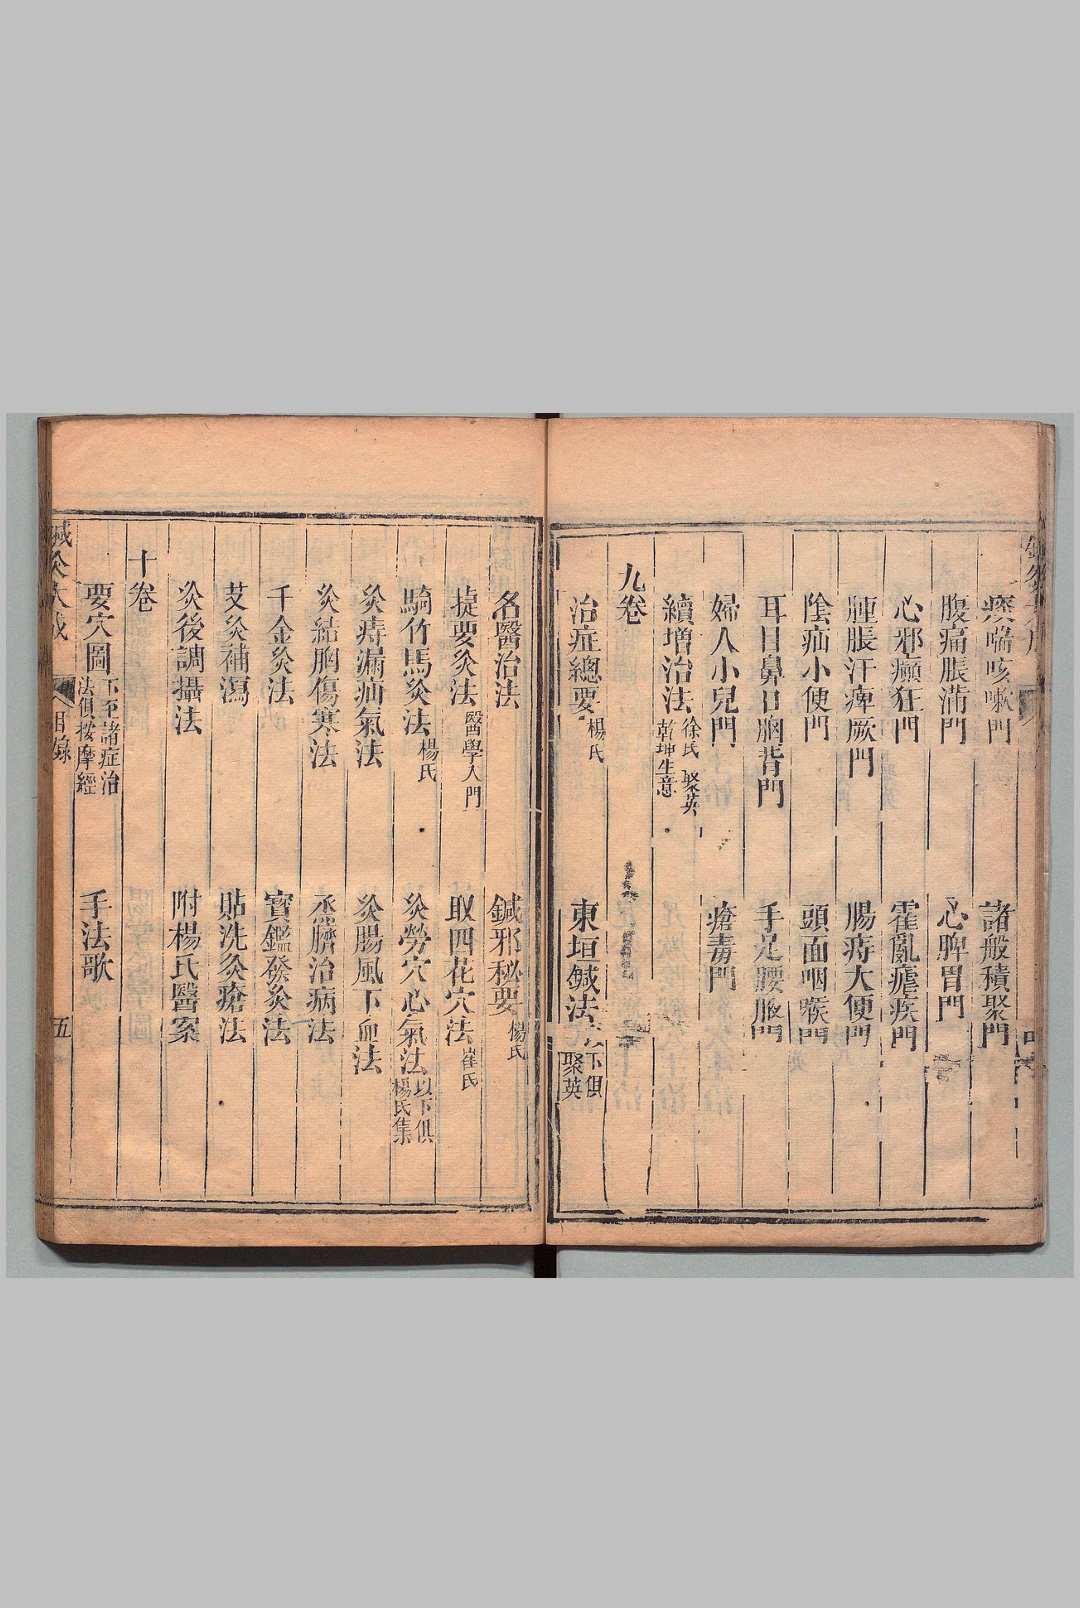 痰喘咳嗽門
諸般積聚門
腹痛脹滿門
心脾胃門
心邪癲狂門
霍亂瘧疾門
腫脹汗痺厥門
腸痔大便門
陰疝小便門
頭面咽喉門
耳目鼻口胸背門
手足腰腋門
婦人小兒門
瘡毒門
續增治法 徐氏 聚英
乾坤生意
九卷
治症總要 楊氏
東垣鍼法 下俱
聚英
名醫治法
鍼邪秘要 楊氏
捷要灸法 醫學入門
取四花穴法 崔氏
騎竹馬灸法 楊氏
灸勞穴心氣法 以下俱
楊氏集
灸痔漏疝氣法
灸腸風下血法
灸結胸傷寒法
烝臍治病法
千金灸法
寶鑑發灸法
艾灸補瀉
貼洗灸瘡法
灸後調攝法
附楊氏醫案
十卷
要穴圖 下至諸症治
法俱按摩經
手法歌
鍼灸大成
目錄
五